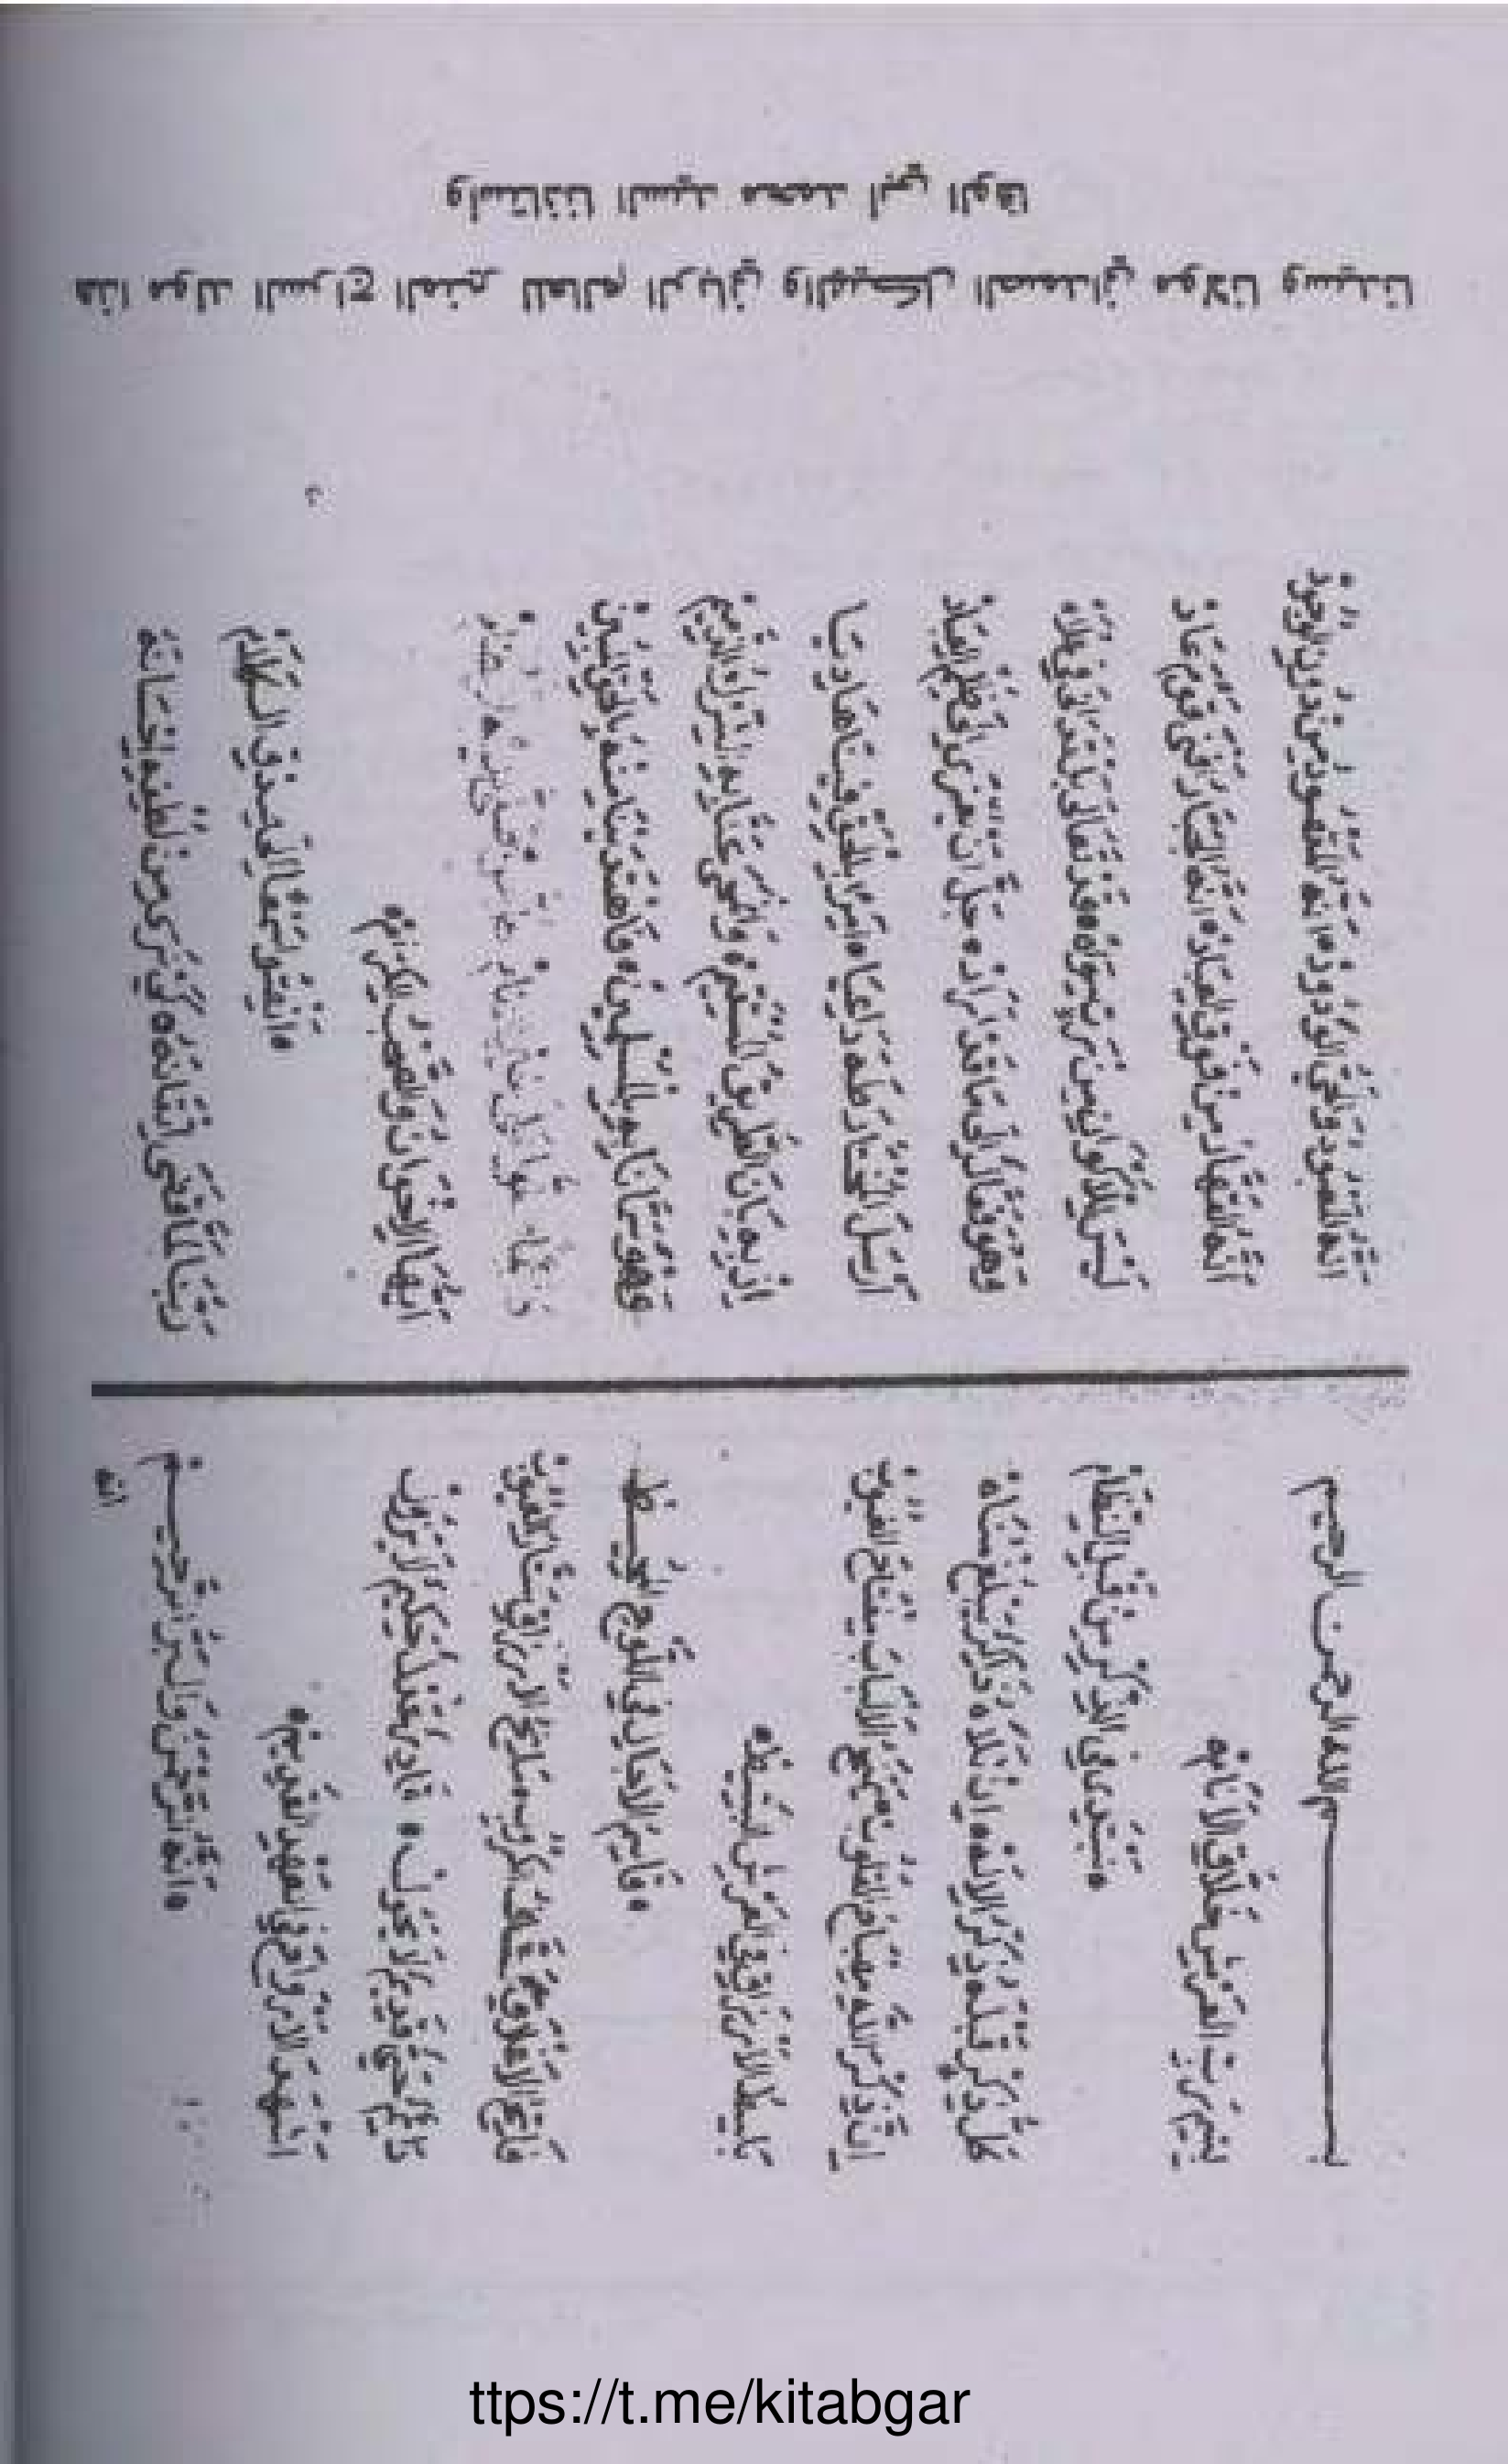 هذا مولد السراج المنير للعالم الرباني والهيكل الصمداني مولانا وسيدنا
واستاذنا السيد محمد ابي الوفا
بسم الله الرحمن الرحيم
بِسْمِ رَبِّ العَرْشِ خَلَّاقِ الأَنَامِ •
• نَبْتَدِي فِي الذِّكْرِ مِنْ قَبْلِ النِّظَامِ
كُلُّ ذِكْرٍ قَبْلَهُ ذِكْرُ الإِلَهِ • إِنْ تَلَاهُ ذَاكِرٌ يَبْلُغْ مُنَاهُ
إِنَّ ذِكْرَ اللهِ مِصْبَاحُ القُلُوبِ • مَجْمَعُ الأَلْبَابِ مِفْتَاحُ الغُيُوبِ
بَاسِطُ الأَرْزَاقِ فِي العَرْشِ البَسِيطِ •
• قَاسِمُ الآجَالِ فِي اللَّوْحِ المُحِيطِ
فَاتِحُ الأَغْلَاقِ كَشَّافُ الكُرُوبِ • مَانِحُ الأَرْزَاقِ سَتَّارُ العُيُوبِ
دَائِمٌ حَيٌّ قَدِيمٌ لَا يَحُولُ • قَادِرٌ عَدْلٌ حَكِيمٌ لَا يَزُولُ
أَشْهَدَ الأَرْوَاحَ فِي العَهْدِ القَدِيمِ •
• أَنَّهُ الرَّحْمَنُ وَالبَرُّ الرَّحِيمُ
انه
أَنَّهُ المَعْبُودُ وَالحَيُّ الوَدُودُ • أَنَّهُ المَقْصُودُ مِنْ دُونِ الوُجُودِ
أَنَّهُ القَهَّارُ مِنْ فَوْقِ العِبَادِ • أَنَّهُ الجَبَّارُ أَفْنَى قَوْمَ عَادِ
لَيْسَ لِلأَكْوَانِ مِنْ رَبٍّ سِوَاهُ • قَدْ تَعَالَى فِي عُلَاهُ
وَهُوَ فَعَّالٌ مَا قَدْ أَرَادَ • جَلَّ أَنْ يُعْزَى إِلَى ظُلْمِ العِبَادِ
أَرْسَلَ المُخْتَارَ طَهَ دَاعِيًا • آمِرًا بِالحَقِّ فِينَا هَادِيًا
إِذْ بِهِ بَانَ الطَّرِيقُ المُسْتَقِيمُ • وَانْمَحَى عَنَّا بِهِ الشِّرْكُ الذَّمِيمُ
وَهُوَ سَمَّانَا بِهِ بِالمُسْلِمِينَ • فَاهْتَدَيْنَا مِنْهُ بِالحَقِّ المُبِينِ
أَيُّهَا الإِخْوَانُ وَالصَّحْبُ الكِرَامُ •
• أَنْصِتُوا سَمْعًا إِلَى صِدْقِ الكَلَامِ
رَبُّنَا لَمَّا قَضَى إِتْقَانَهُ • كَيْ نَرَى مِنْ لُطْفِهِ إِحْسَانَهُ
ttps://t.me/kitabgar